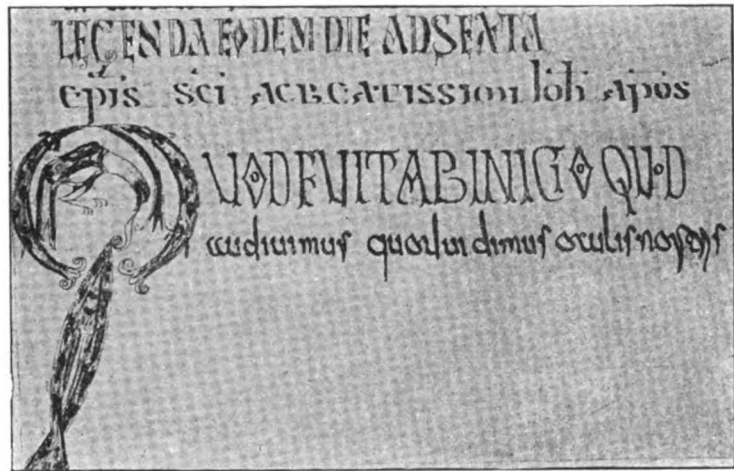 LEGENDA EODEM DIE ADSEXTA
epis sci ac beatissimi iohis apos
QUOD FUIT AB INICIO QUOD
audiuimus quod uidimus oculis nostris